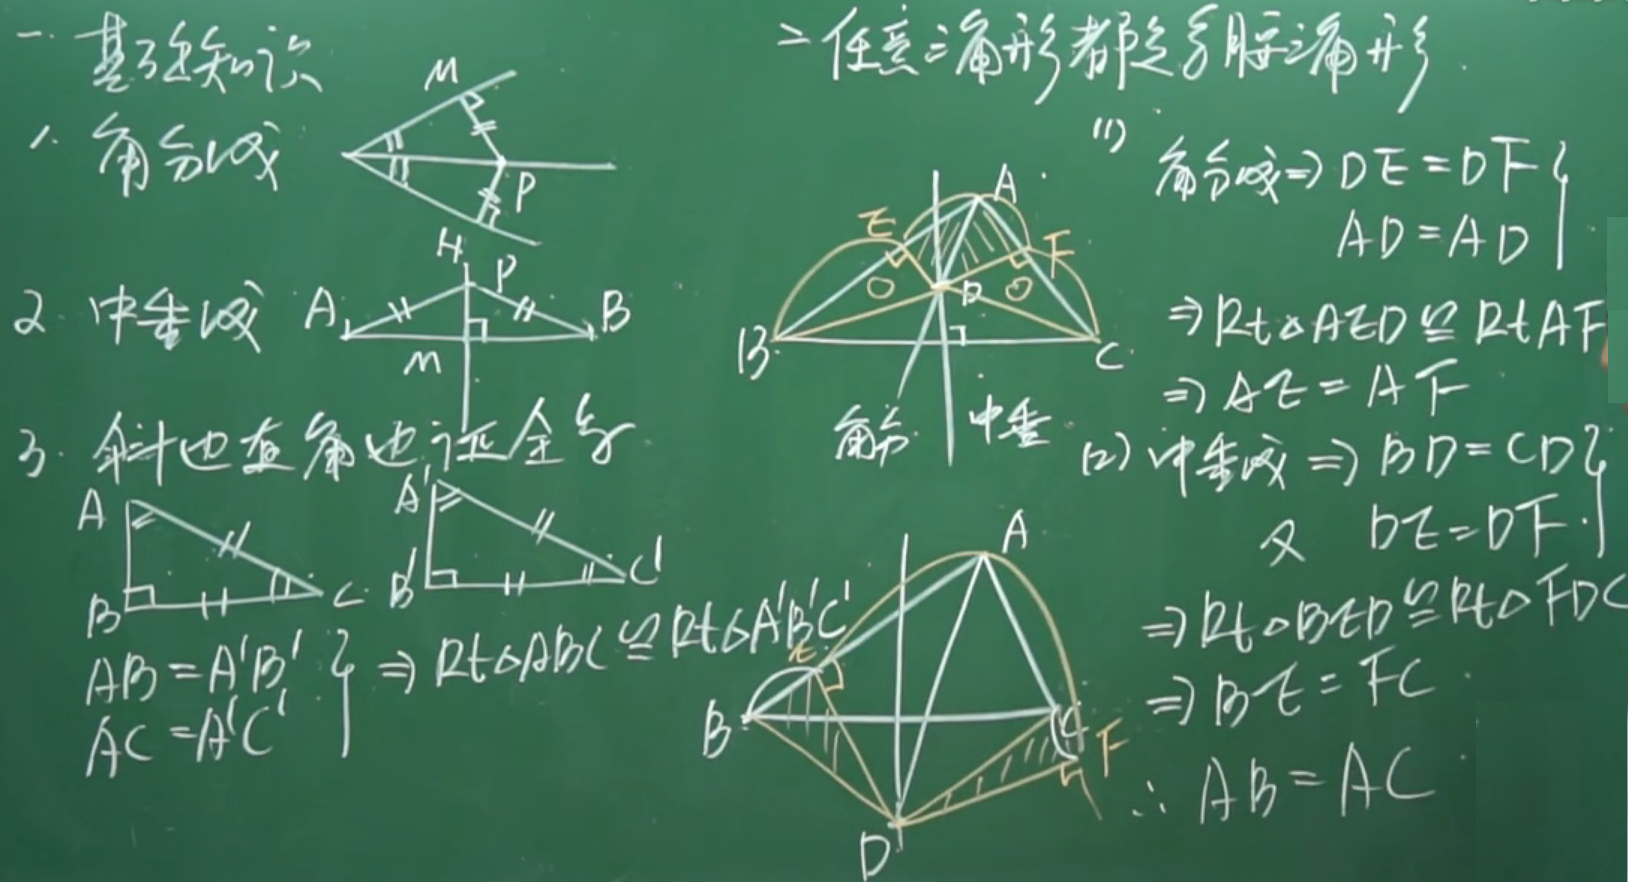 一. 基础知识
1. 角分线
M
P
2. 中垂线
H
P
A
B
M
3. 斜边直角边证全等
A
B
C
A'
B'
C'
AB=A'B'
AC=A'C'
} ⇒ Rt△ABC≌Rt△A'B'C'
二 任意三角形都是等腰三角形.
A
E
F
D
B
C
角分
中垂
(1)
角分线⇒DE=DF
AD=AD }
⇒Rt△AED≌RtAF
⇒AE=AF
(2) 中垂线⇒BD=CD
又 DE=DF. }
⇒Rt△BED≌Rt△FDC
⇒BE=FC.
∴AB=AC
A
E
B
C
F
D